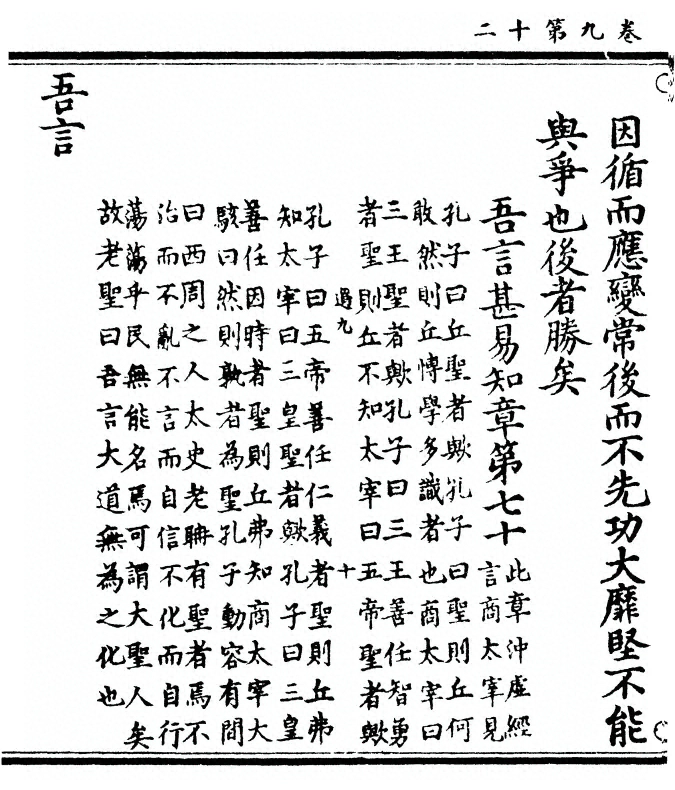 卷九第十二
因循而應變常後而不先功大靡堅不能
與爭也後者勝矣
吾言甚易知章第七十
此章沖虛經
言商太宰見
孔子曰丘聖者歟孔子曰聖則丘何
敢然則丘博學多識者也商太宰曰
三王聖者歟孔子曰三王善任智勇
者聖則丘不知太宰曰五帝聖者歟
遇九 十
孔子曰五帝善任仁義者聖則丘弗
知太宰曰三皇聖者歟孔子曰三皇
善任因時者聖則丘弗知商太宰大
駭曰然則孰者為聖孔子動容有間
曰西周之人太史老聃有聖者焉不
治而不亂不言而自信不化而自行
蕩蕩乎民無能名焉可謂大聖人矣
故老聖曰吾言大道無為之化也
吾言